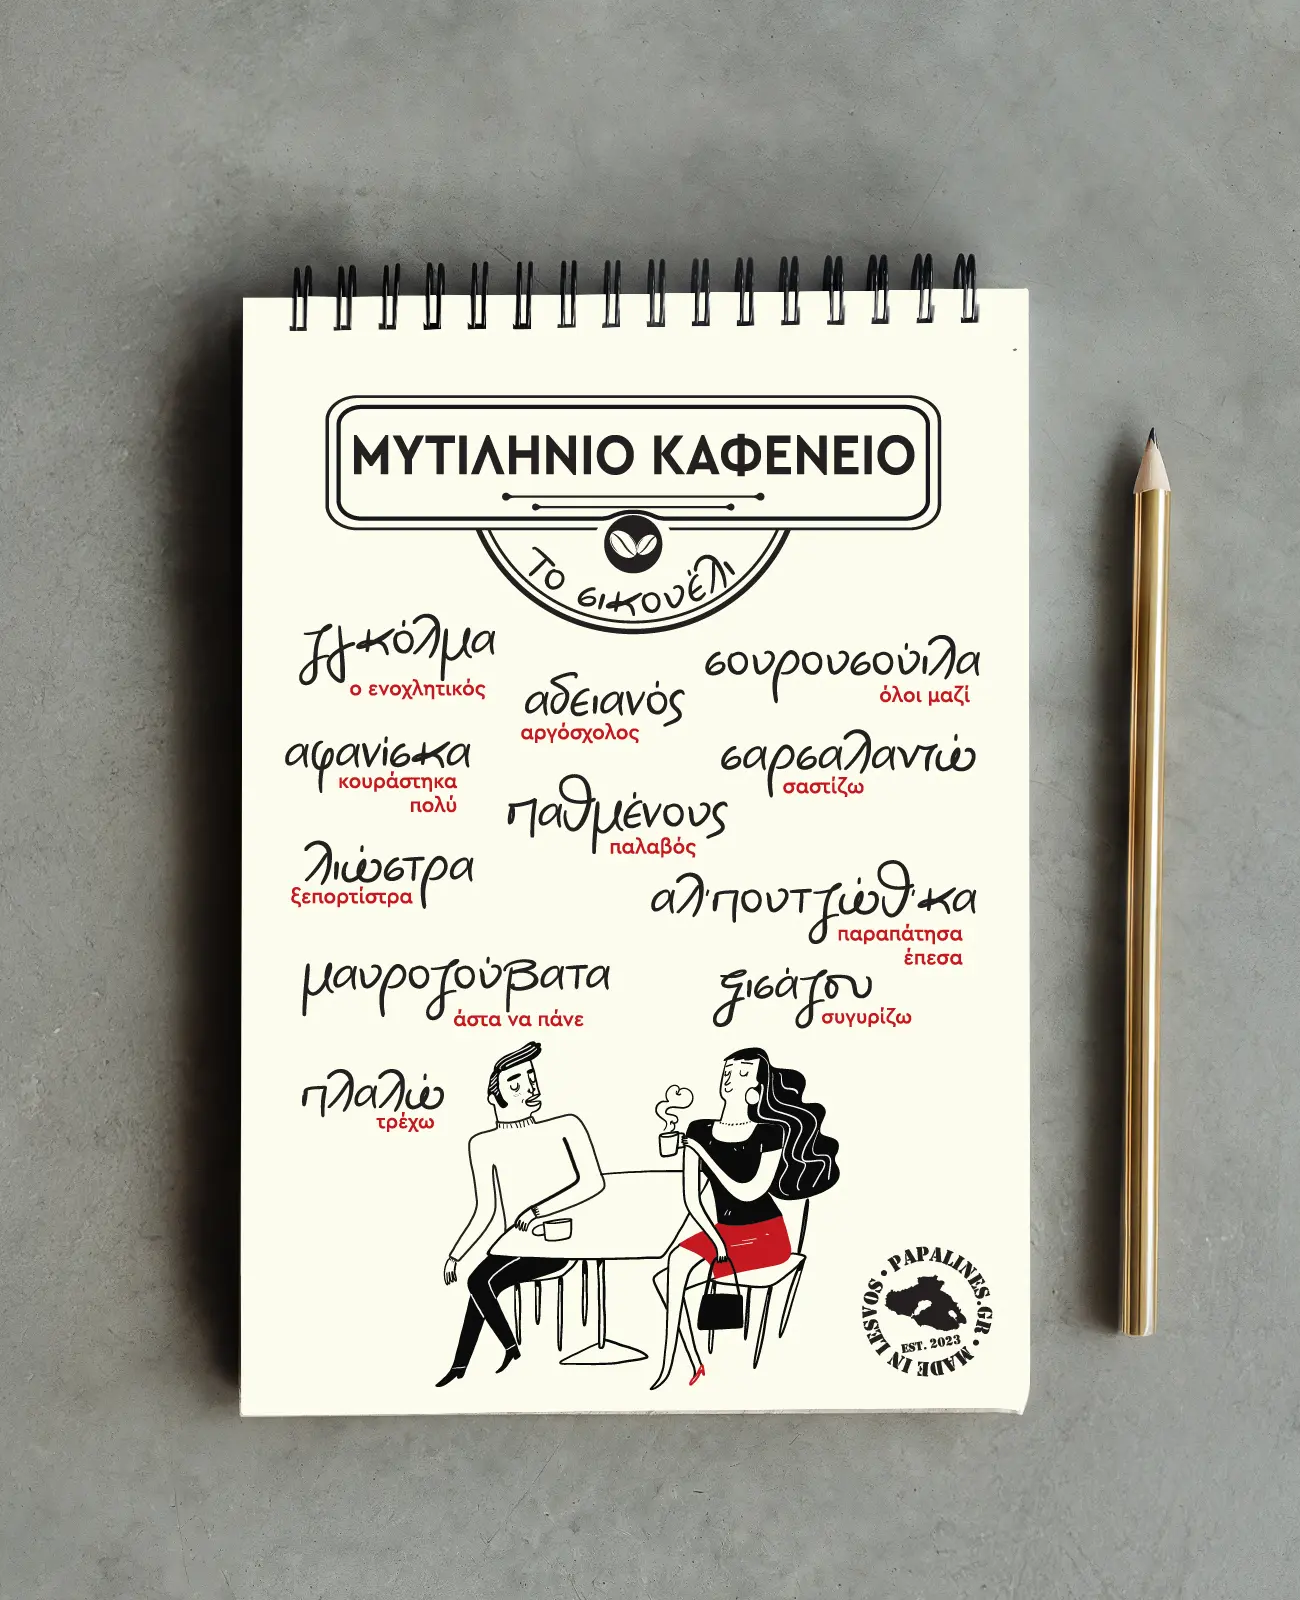 ΜΥΤΙΛΗΝΙΟ ΚΑΦΕΝΕΙΟ
Το σικουέλι
ζγκόλμα
ο ενοχλητικός
σουρουσούιλα
όλοι μαζί
αδειανός
αργόσχολος
αφανίσκα
κουράστηκα
πολύ
σαρσαλαντώ
σαστίζω
παθμένους
παλαβός
λιώστρα
ξεπορτίστρα
αλ'πουτζώθ'κα
παραπάτησα
έπεσα
μαυροζούβατα
άστα να πάνε
ξισάζου
συγυρίζω
πλαλώ
τρέχω
PAPALINES.GR • MADE IN LESVOS •
EST. 2023